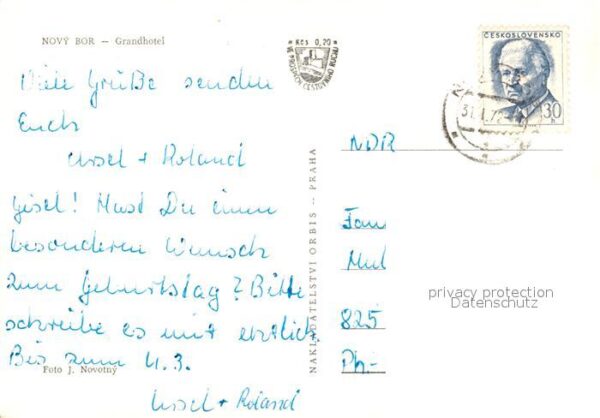 NOVÝ BOR – Grandhotel
Kčs 0,20
VE PROSPĚCH CESTOVNÍHO RUCHU
ČESKOSLOVENSKO
30 h
31.1.72
Viele Grüße senden
Euch
Ursel + Roland
Gisel! Hast Du einen
besonderen Wunsch
zum Geburtstag? Bitte
schreibe es mir ehrlich
Bis zum 4.3.
Ursel + Roland
Foto J. Novotný
NAKLADATELSTVÍ ORBIS – PRAHA
NDR
Fam
825
privacy protection
Datenschutz